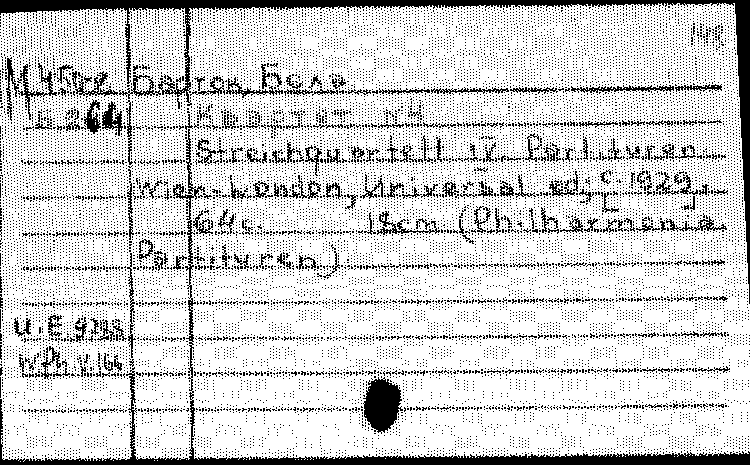 Барток, Бела
Квартет N4
Streichquartett IV. Partituren
Wien-London, Universal ed., c. 1929.
64 c. 18cm (Philharmonia
Partituren)
U.E. 9788
W.Ph.V.166